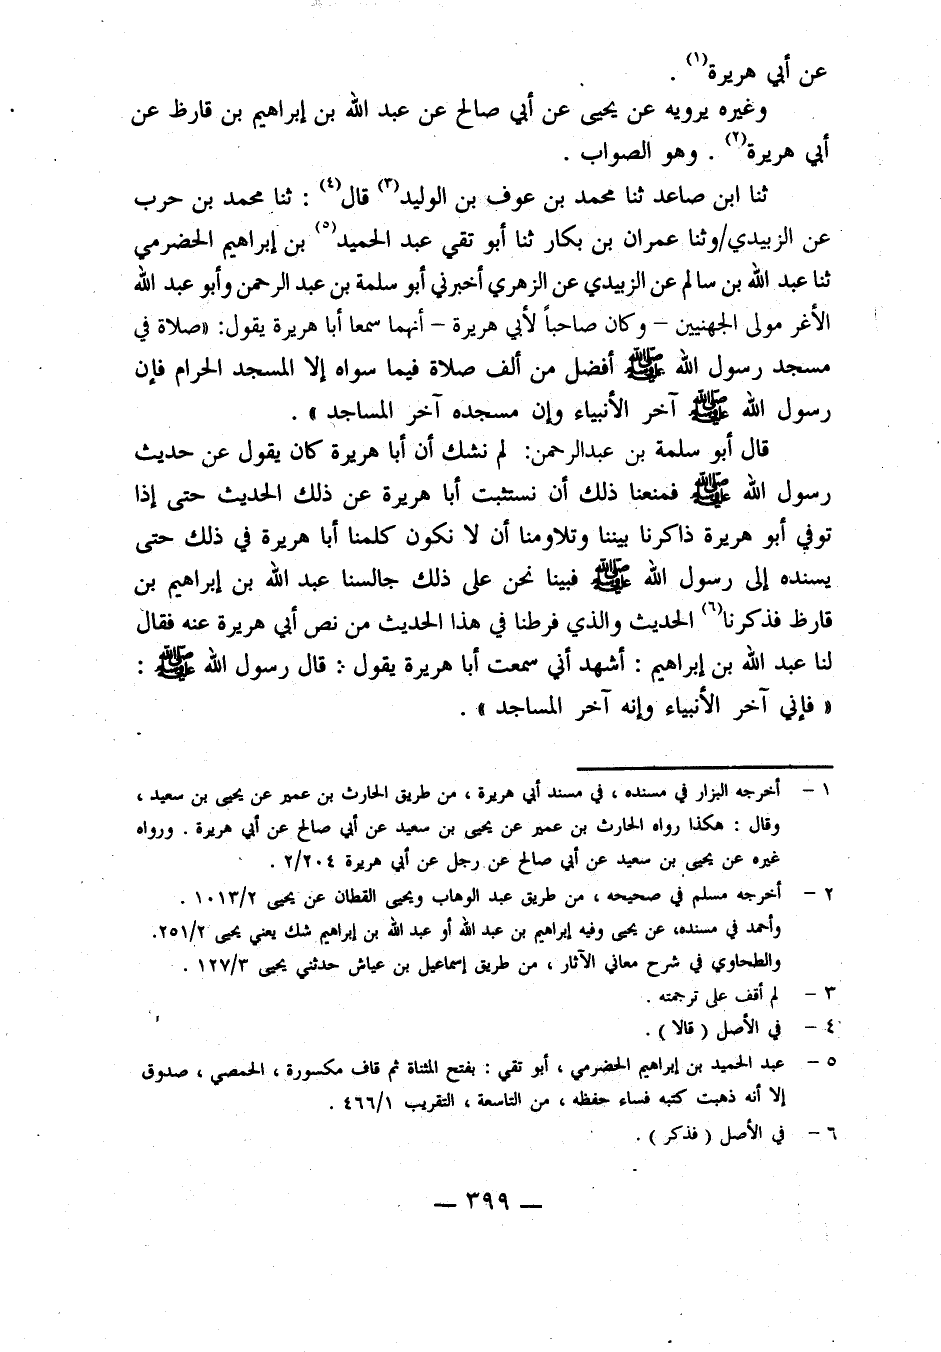 عن أبي هريرة(١) .
وغيره يرويه عن يحيى عن أبي صالح عن عبد الله بن إبراهيم بن قارظ عن
أبي هريرة(٢) . وهو الصواب .
ثنا ابن صاعد ثنا محمد بن عوف بن الوليد(٣) قال(٤) : ثنا محمد بن حرب
عن الزبيدي/وثنا عمران بن بكار ثنا أبو تقي عبد الحميد(٥) بن إبراهيم الحضرمي
ثنا عبد الله بن سالم عن الزبيدي عن الزهري أخبرني أبو سلمة بن عبد الرحمن وأبو عبد الله
الأغر مولى الجهنيين – وكان صاحباً لأبي هريرة – أنهما سمعا أبا هريرة يقول: «صلاة في
مسجد رسول الله ﷺ أفضل من ألف صلاة فيما سواه إلا المسجد الحرام فإن
رسول الله ﷺ آخر الأنبياء وإن مسجده آخر المساجد » .
قال أبو سلمة بن عبدالرحمن: لم نشك أن أبا هريرة كان يقول عن حديث
رسول الله ﷺ فمنعنا ذلك أن نستثبت أبا هريرة عن ذلك الحديث حتى إذا
توفي أبو هريرة ذاكرنا بيننا وتلاومنا أن لا نكون كلمنا أبا هريرة في ذلك حتى
يسنده إلى رسول الله ﷺ فبينا نحن على ذلك جالسنا عبد الله بن إبراهيم بن
قارظ فذكرنا(٦) الحديث والذي فرطنا في هذا الحديث من نص أبي هريرة عنه فقال
لنا عبد الله بن إبراهيم : أشهد أني سمعت أبا هريرة يقول : قال رسول الله ﷺ :
« فإني آخر الأنبياء وإنه آخر المساجد » .
١ – أخرجه البزار في مسنده ، في مسند أبي هريرة ، من طريق الحارث بن عمير عن يحيى بن سعيد ،
وقال : هكذا رواه الحارث بن عمير عن يحيى بن سعيد عن أبي صالح عن أبي هريرة . ورواه
غيره عن يحيى بن سعيد عن أبي صالح عن رجل عن أبي هريرة ٢/٢٠٤ .
٢ – أخرجه مسلم في صحيحه ، من طريق عبد الوهاب ويحيى القطان عن يحيى ١٠١٣/٢ .
وأحمد في مسنده، عن يحيى وفيه إبراهيم بن عبد الله أو عبد الله بن إبراهيم شك يعني يحيى ٢٥١/٢.
والطحاوي في شرح معاني الآثار ، من طريق إسماعيل بن عياش حدثني يحيى ١٢٧/٣ .
٣ – لم أقف على ترجمته .
٤ – في الأصل ( قالا ) .
٥ – عبد الحميد بن إبراهيم الحضرمي ، أبو تقي : بفتح المثناة ثم قاف مكسورة ، الحمصي ، صدوق
إلا أنه ذهبت كتبه فساء حفظه ، من التاسعة ، التقريب ٤٦٦/١ .
٦ – في الأصل ( فذكر ) .
— ٣٩٩ —